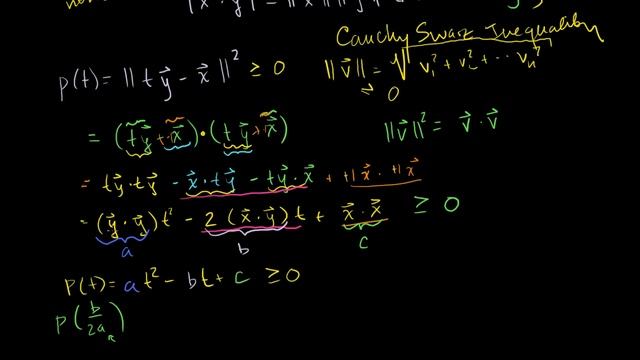 |x⃗ · y⃗| =
Cauchy Swarz Inequality
p(t) = ‖t y⃗ − x⃗‖² ≥ 0
‖v⃗‖ = √(v₁² + v₂² + ··· vₙ²)
≥ 0
= (t y⃗ + x⃗) · (t y⃗ + x⃗)
‖v⃗‖² = v⃗ · v⃗
= t y⃗ · t y⃗ − x⃗ · t y⃗ − t y⃗ · x⃗ + +1 x⃗ · +1 x⃗
= (y⃗ · y⃗) t² − 2 (x⃗ · y⃗) t + x⃗ · x⃗ ≥ 0
a b c
p(t) = a t² − b t + c ≥ 0
p(b/2a)